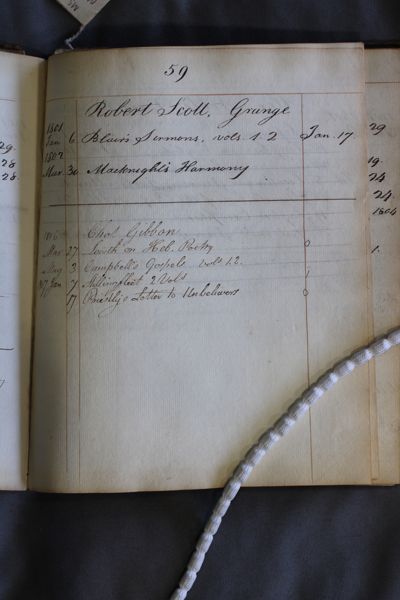 59
Robert Scott. Grange
1801
Jan 6 Blair's Sermons, vols. 1. 2 Jan. 17
1802
Mar. 30 Macknight's Harmony
Chas Gibbon
Mar 27 Lowth on Heb. Poetry 0
May 3 Campbell's Gospels vols 1.2.
Jan 7 Stillingfleet 2 Vols
17 Priestly's Letter to Unbelievers 0
29
19.
24.
24.
1804
1.
29.
28
28.